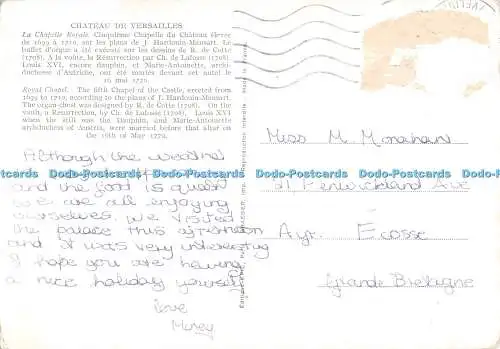 CHATEAU DE VERSAILLES
La Chapelle Royale. Cinquième Chapelle du Château élevée
de 1699 à 1710, sur les plans de J. Hardouin-Mansart. Le
buffet d'orgue a été exécuté sur les dessins de R. de Cotte
(1708). A la voûte, la Résurrection par Ch. de Lafosse (1708).
Louis XVI, encore dauphin, et Marie-Antoinette, archi-
duchesse d'Autriche, ont été mariés devant cet autel le
16 mai 1770.
Royal Chapel. The fifth Chapel of the Castle, erected from
1699 to 1710, according to the plans of J. Hardouin-Mansart.
The organ-chest was designed by R. de Cotte (1708). On the
vault, a Resurrection, by Ch. de Lafosse (1708). Louis XVI
when he still was the Dauphin, and Marie-Antoinette
archiduchess of Austria, were married before that altar on
the 16th of May 1770.
Although the weather
and the food is
we are all enjoying
ourselves. We visited
the palace this afternoon
and it was very interesting
I hope you are having
a nice holiday yourself
love
Miss M. Monahan
21 Fenwickland Ave
Ayr. Ecosse
Grande Bretagne
Dodo-Postcards Dodo-Postcards Dodo-Postcards